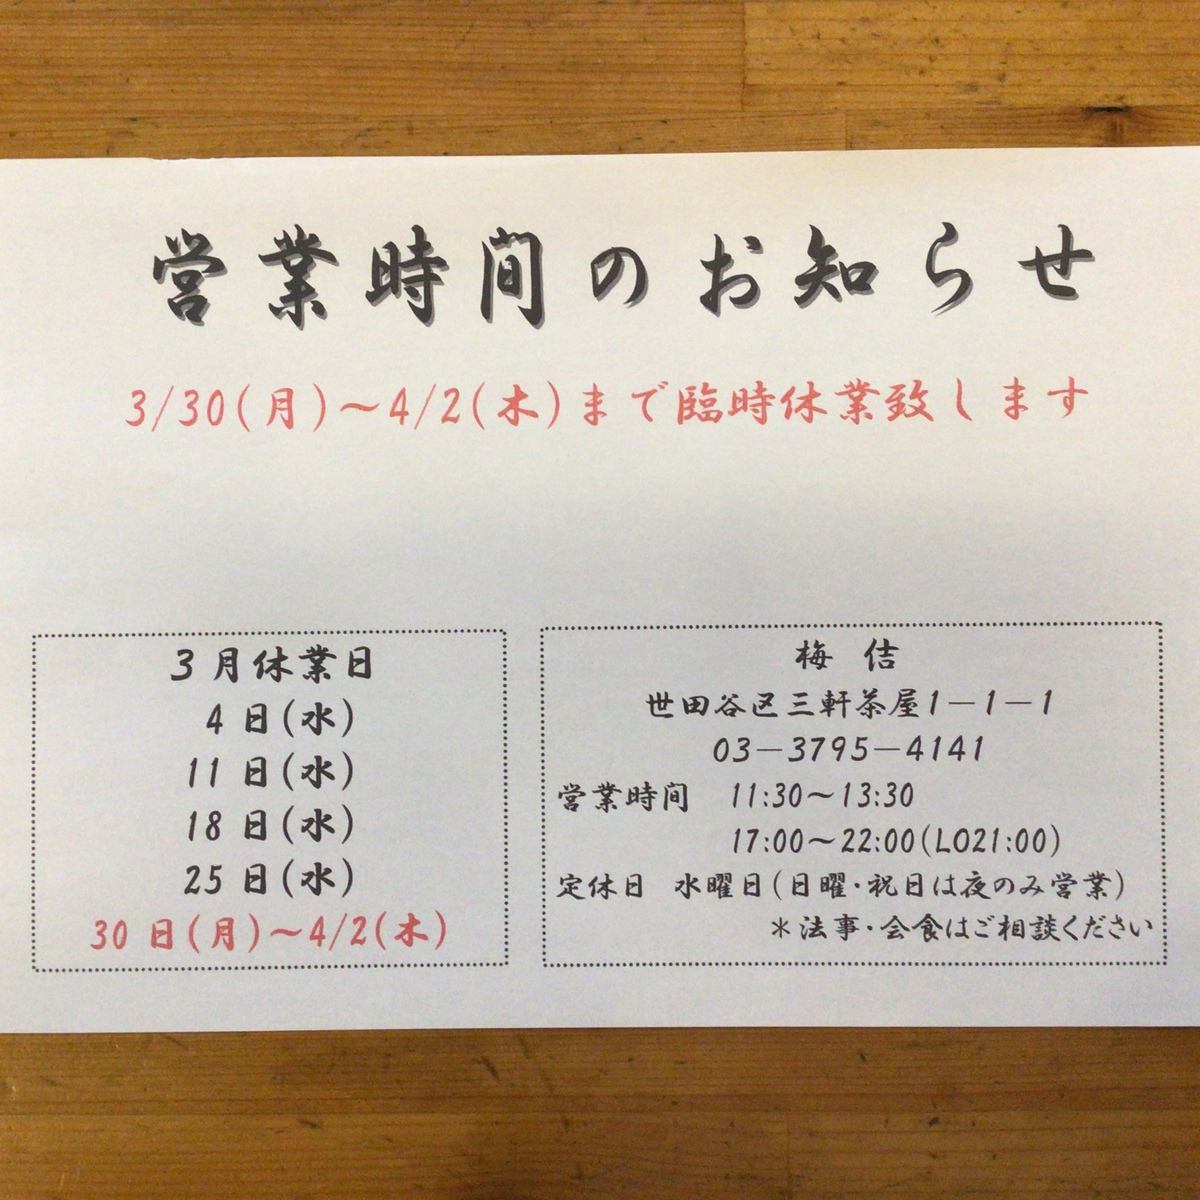 営業時間のお知らせ
3/30(月)～4/2(木)まで臨時休業致します
3月休業日
4日(水)
11日(水)
18日(水)
25日(水)
30日(月)～4/2(木)
梅佶
世田谷区三軒茶屋1－1－1
03－3795－4141
営業時間　11:30～13:30
17:00～22:00(LO21:00)
定休日　水曜日(日曜・祝日は夜のみ営業)
＊法事・会食はご相談ください